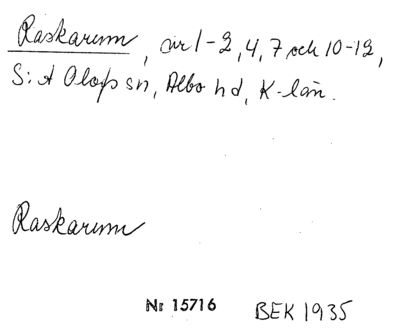 Raskarum, nr 1-2, 4, 7 och 10-12,
S:t Olofs sn, Albo hd, K-län.
Raskarum
Nr 15716 BEK 1935